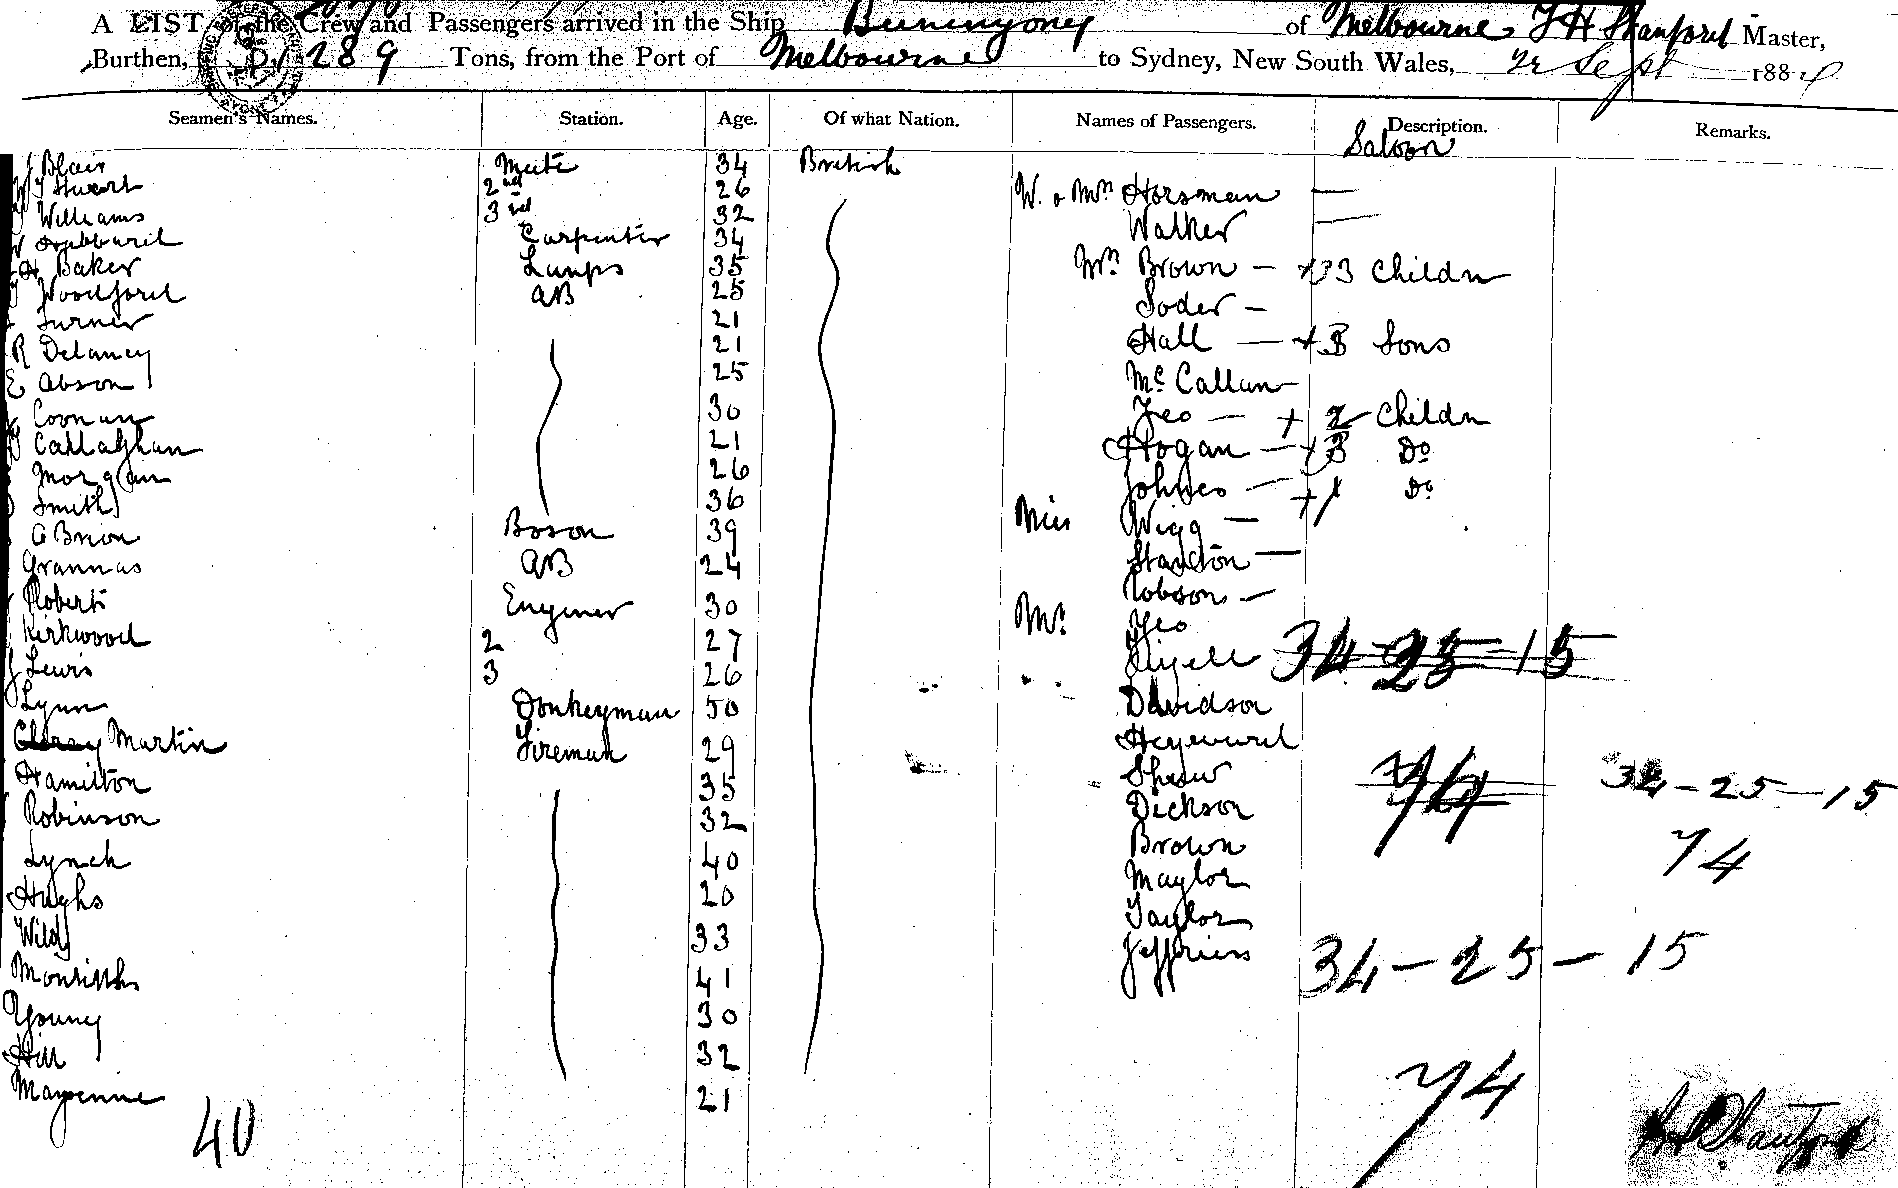 A LIST of the Crew and Passengers arrived in the Ship Buninyong of Melbourne, T H Stanford Master,
Burthen, 1289 Tons, from the Port of Melbourne to Sydney, New South Wales, 22 Sept 1884
Seamen's Names. Station. Age. Of what Nation. Names of Passengers. Description. Remarks.
Saloon
J Blair Mate 34 British
Stuart 2nd 26 W. & Mrs Horsman —
Williams 3rd 32 Walker —
Hubbard Carpenter 34
H Baker Lamps 35 Mrs Brown — + 3 Childn
Woodford AB 25 Soder —
Turner 21
R Delaney 21 Hall — + 3 Sons
E Abson 25 McCallum —
Coonan 30 Yeo — + 2 Childn
Callaghan 21 Hogan — + 3 Do
Morgan 26 Johnes — + 1 Do
Smith 36 Miss Wigg —
O Brien Boson 39
Grannas AB 24 Stanton —
Roberts Enginer 30 Robson —
Kirkwood 2 27 Mr. Yeo
J Lewis 3 26 34-25-15
Lynn Donkeyman 50 Davidson
Martin Fireman 29 Heyward
Hamilton 35 Shaw 74 34-25-15
Robinson 32 Dickson
Lynch 40 Brown 74
Hughs 20 Maylor
Wild 33 Taylor
Jefferies 34-25-15
Montieth 41
Young 30
Hill 32
21 74
40